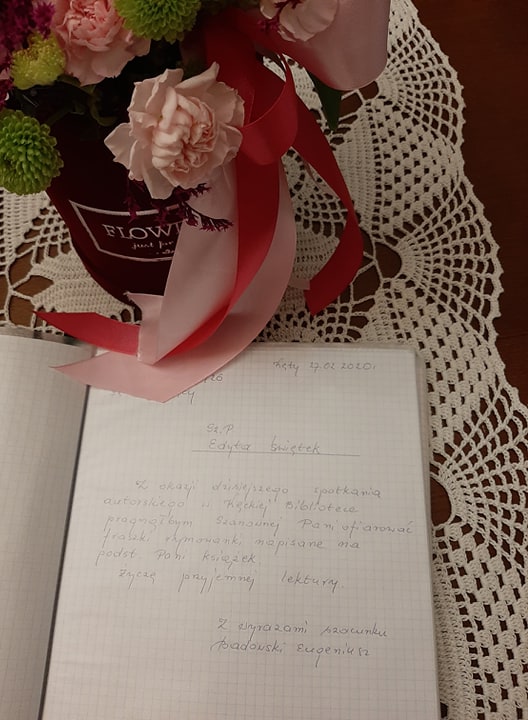 FLOWE
just for
Kęty 27.02.2020r
Sz.P.
Edyta Świętek
Z okazji dzisiejszego spotkania
autorskiego w Kęckiej Bibliotece
pragnąłbym Szanownej Pani ofiarować
fraszki rymowanki napisane na
podst Pani książek.
Życzę przyjemnej lektury.
Z wyrazami szacunku
Eugeniusz